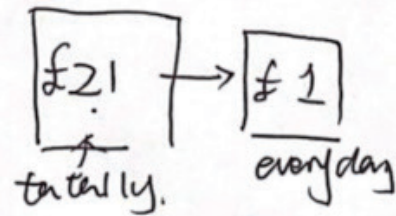 £21 → £1
totally. everyday